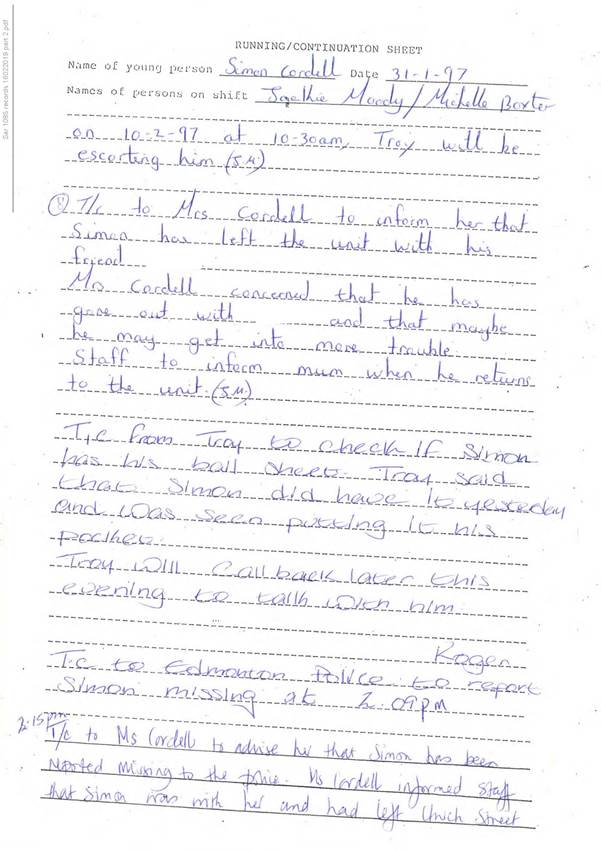 Sar 1085 records 16022019 part 2.pdf
RUNNING/CONTINUATION SHEET
Name of young person Simon Cordell Date 31-1-97
Names of persons on shift Moody/Michelle Boxter
on 10-2-97 at 10-30am, Troy will be
escorting him (S.M)
T/c to Mrs Cordell to inform her that
Simon has left the unit with his
friend
Mrs Cordell concerned that he has
gone out with and that maybe
he may get into more trouble
Staff to inform mum when he returns
to the unit. (S.M.)
T.c from Troy to check if Simon
has his bail sheet. Troy said
that Simon did have it yesterday
and was seen putting it his
pocket.
Troy will call back later this
evening to talk with him.
Roger
T.c to Edmonton Police to report
Simon missing at 2.09pm
2.15pm
T/c to Ms Cordell to advise her that Simon has been
reported missing to the police. Ms Cordell informed staff
that Simon was with her and had left Street